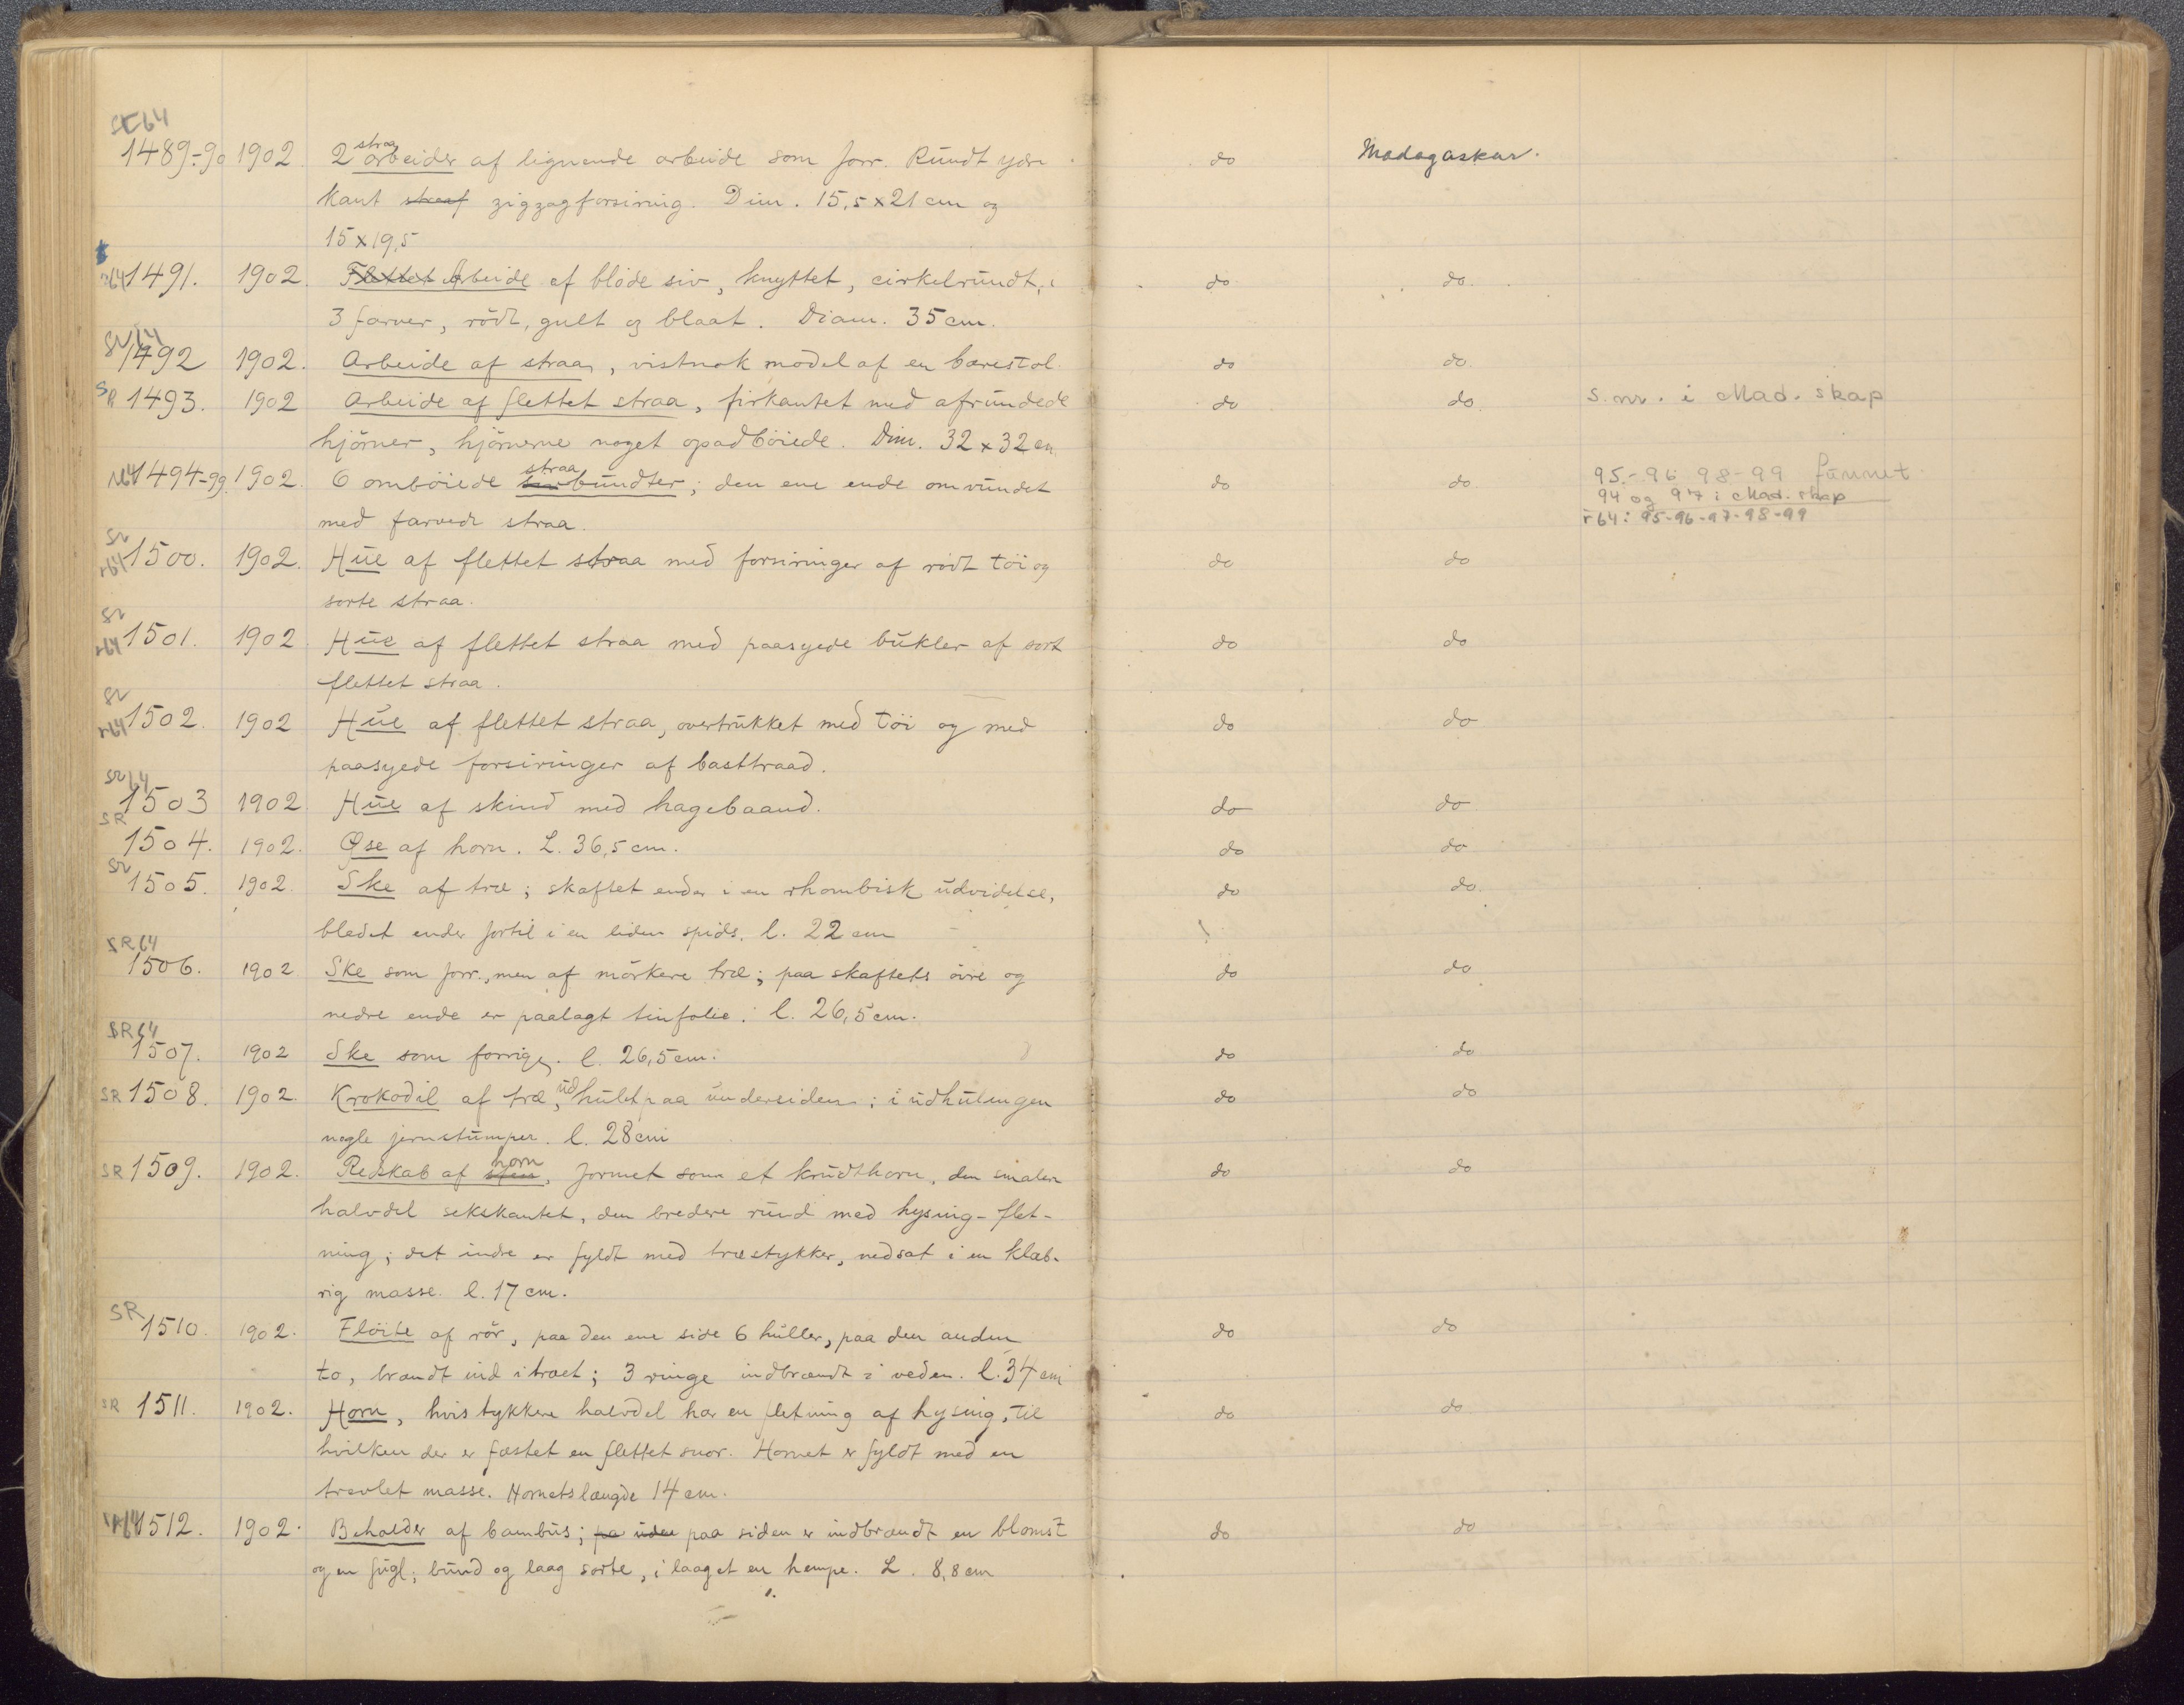 SR64
1489-90 1902. 2 straaarbeider af lignende arbeide som forr. Rundt ydre do Madagaskar.
kant straaf zigzagforsiring. Dim. 15,5 x 21 cm og
15 x 19,5
r64 1491. 1902. Flettet Arbeide af bløde siv, knyttet, cirkelrundt, i do do.
3 farver, rödt, gult og blaat. Diam. 35 cm.
SR 64
1492 1902. Arbeide af straa, vistnok model af en bærestol. do do.
SR 1493. 1902 Arbeide af flettet straa, firkantet med afrundede do do. S.nr. i Mad. skap
hjörner, hjörnerne noget opadböiede. Dim. 32 x 32 cm.
r64 1494-99. 1902. 6 omböiede straabundter; den ene ende omvundet do do. 95-96 98-99 funnet
94 og 97 i Mad. skap
med farvede straa. r64: 95-96-97-98-99
SR
r64 1500. 1902. Hue af flettet straa med forsiringer af rödt töi og do do
sorte straa.
SR
r64 1501. 1902. Hue af flettet straa med paasyede bukler af sort do do
flettet straa.
SR
r64 1502. 1902 Hue af flettet straa, overtrukket med töi og med do do
paasyede forsiringer af basttraad.
SR 64
1503 1902. Hue af skind med hagebaand. do do
SR
1504. 1902. Øse af horn. L. 36,5 cm. do do
SR
1505. 1902. Ske af træ; skaftet ender i en rhombisk udvidelse, do do.
bledet ender fortil i en liden spids. l. 22 cm
SR 64
1506. 1902 Ske som forr., men af mörkere træ; paa skaftets övre og do do
nedre ende er paalagt tinfolie. l. 26,5 cm.
SR 64
1507. 1902 Ske som forrige. l. 26,5 cm. do do
SR 1508. 1902. Krokodil af træ, udhulet paa undersiden; i udhulingen do do
nogle jernstumper. l. 28 cm
SR 1509. 1902. Redskab af sten horn, formet som et krudthorn, den smalere do do
halvdel sekskantet, den bredere rund med hysing-flet-
ning; det indre er fyldt med træstykker, nedsat i en klæb-
rig masse. l. 17 cm.
SR
1510. 1902. Flöite af rör, paa den ene side 6 huller, paa den anden do do
to, brændt ind i træet; 3 ringe indbrændt i veden. l. 34 cm
SR 1511. 1902. Horn, hvis tykkere halvdel har en fletning af hysing, til do do
hvilken der er fæstet en flettet snor. Hornet er fyldt med en
trevlet masse. Hornets længde 14 cm.
r64 1512. 1902. Beholder af bambus; pa uden paa siden er indbrændt en blomst do do
og en fugl; bund og laag sorte, i laaget en hempe. L. 8,8 cm